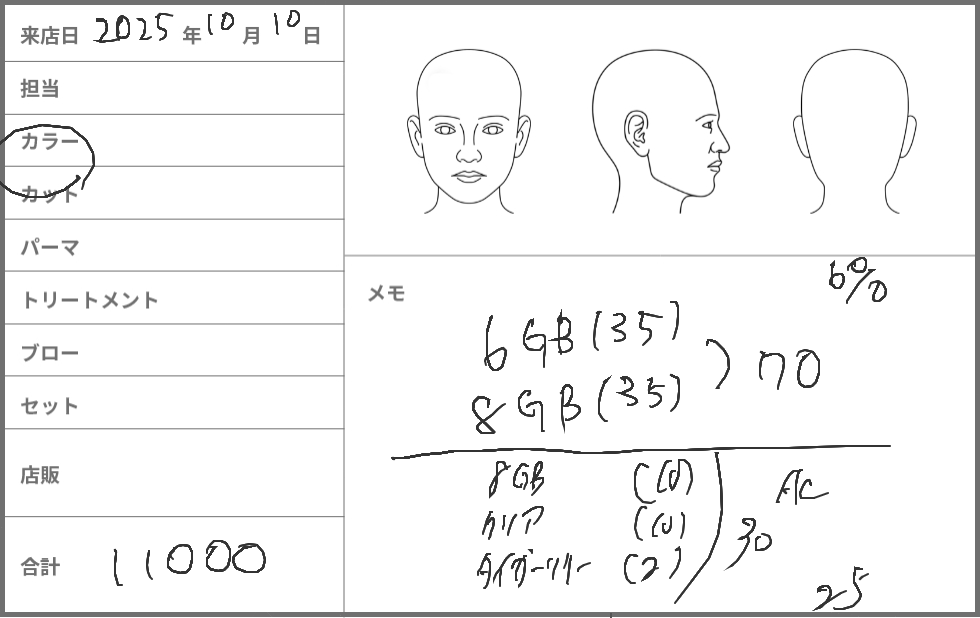 来店日 2025年10月10日
担当
カラー
カット
パーマ
トリートメント
ブロー
セット
店販
合計 11000
メモ
6%
6GB(35)
8GB(35) ) 70
8GB (10)
クリア (10)
(2)
30
25